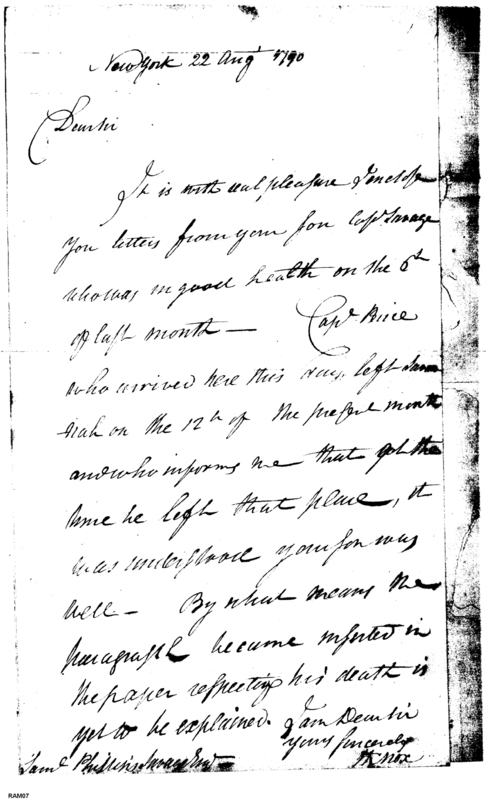 New York 22 Augt 1790
Dear Sir
It is with real pleasure I enclose
you letters from your son Capt Savage
who was in good health on the 6th
of last month — Capt Brice
who arrived here this day, left Savan
nah on the 12th of the present month
and who informs me that at the
time he left that place, it
was understood your son was
well — By what means the
paragraph became inserted in
the paper respecting his death is
yet to be explained. I am Dear Sir
yours Sincerely
HKnox
Saml Phillips Savage Esqr
RAM07